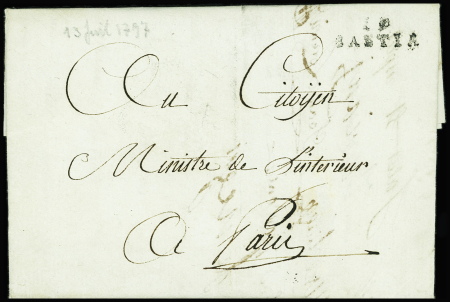 13 juil 1797
19
BASTIA
Au Citoyen
Ministre de L'interieur
A Paris